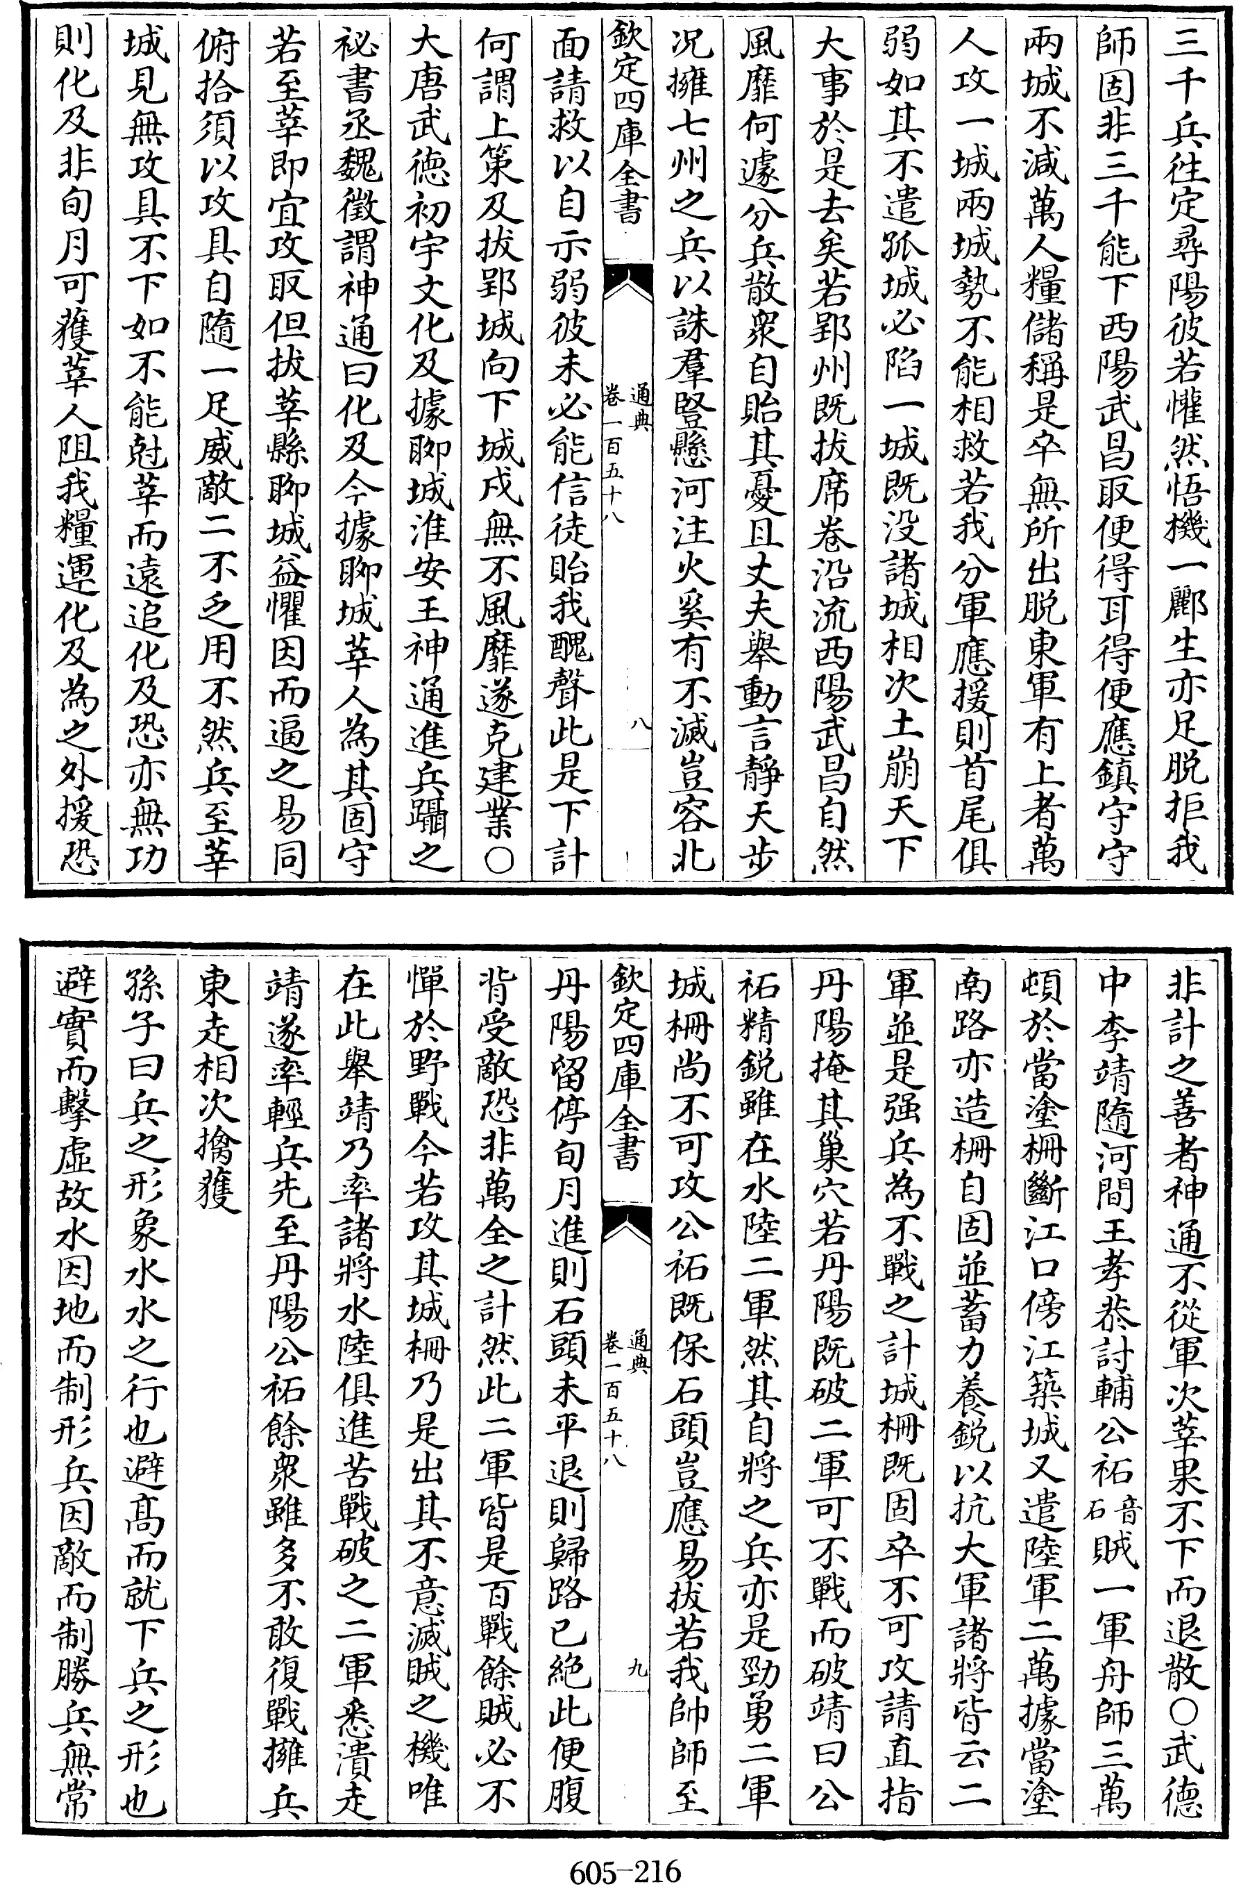 三千兵往定尋陽彼若懽然悟機一酈生亦足脱拒我
師固非三千能下西陽武昌取便得耳得便應鎮守守
兩城不減萬人糧儲稱是卒無所出脱東軍有上者萬
人攻一城兩城勢不能相救若我分軍應援則首尾俱
弱如其不遣孤城必陷一城既没諸城相次土崩天下
大事於是去矣若郢州既拔席卷沿流西陽武昌自然
風靡何遽分兵散衆自貽其憂且丈夫舉動言靜天步
况擁七州之兵以誅羣豎懸河注火奚有不滅豈容北
欽定四庫全書
通典
卷一百五十八
八
面請救以自示弱彼未必能信徒貽我醜聲此是下計
何謂上策及拔郢城向下城戍無不風靡遂克建業〇
大唐武德初宇文化及據聊城淮安王神通進兵躡之
祕書丞魏徵謂神通曰化及今據聊城莘人為其固守
若至莘即宜攻取但拔莘縣聊城益懼因而逼之易同
俯拾須以攻具自隨一足威敵二不乏用不然兵至莘
城見無攻具不下如不能尅莘而遠追化及恐亦無功
則化及非旬月可獲莘人阻我糧運化及為之外援恐
非計之善者神通不從軍次莘果不下而退散〇武德
中李靖隨河間王孝恭討輔公祏音石賊一軍舟師三萬
頓於當塗柵斷江口傍江築城又遣陸軍二萬據當塗
南路亦造柵自固並蓄力養鋭以抗大軍諸將皆云二
軍並是强兵為不戰之計城柵既固卒不可攻請直指
丹陽掩其巢穴若丹陽既破二軍可不戰而破靖曰公
祏精鋭雖在水陸二軍然其自將之兵亦是勁勇二軍
城柵尚不可攻公祏既保石頭豈應易拔若我帥師至
欽定四庫全書
通典
卷一百五十八
九
丹陽留停旬月進則石頭未平退則歸路已絶此便腹
背受敵恐非萬全之計然此二軍皆是百戰餘賊必不
憚於野戰今若攻其城柵乃是出其不意滅賊之機唯
在此舉靖乃率諸將水陸俱進苦戰破之二軍悉潰走
靖遂率輕兵先至丹陽公祏餘衆雖多不敢復戰擁兵
東走相次擒獲
孫子曰兵之形象水水之行也避髙而就下兵之形也
避實而擊虛故水因地而制形兵因敵而制勝兵無常
605-216